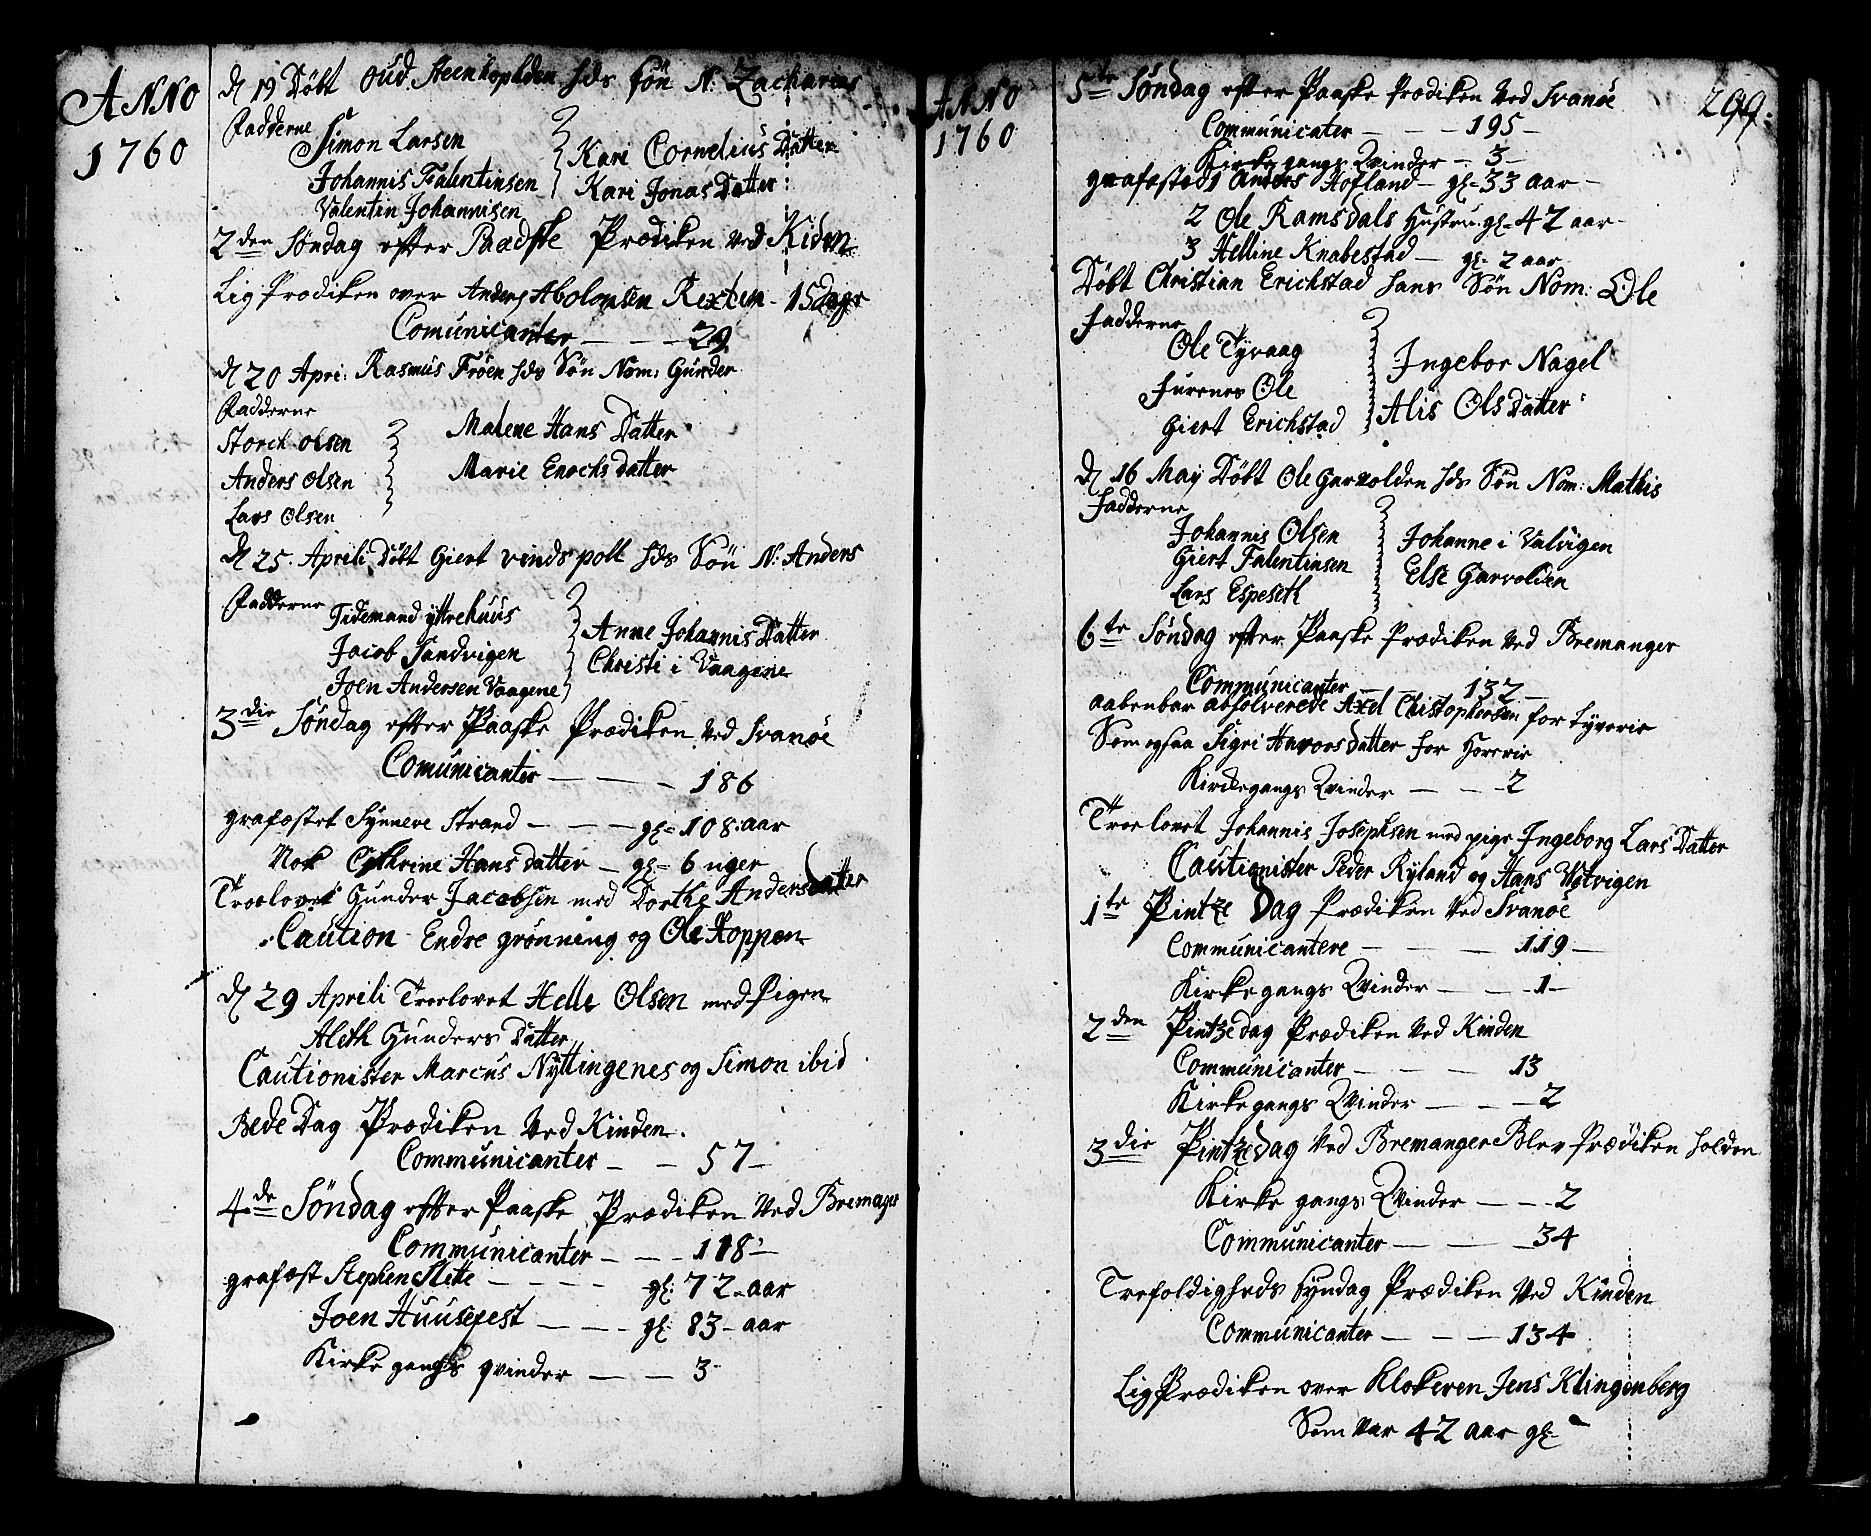 ANNO
1760
d 19 Döbt Oud Steenhopfden hds sön N: Zacharias
Fadderne
Simon Larsen
Johannis Falentinsen
Valentin Johannisen
Kari Cornelius Datter
Kari Jonas Datter:
2den Söndag efter Paadske Prædiken ved Kiden
Lig Prædiken over Anders Abolonsen Rexten - 15 dage
Comunicanter — — 29
d 20 Apri: Rasmus Fröen hds Sön Nom: Gunder
Fadderne
Storck olsen
Anders olsen
Lars Olsen
Malene Hans Datter
Marie Enochs datter
d 25. Aprili Döbt Giert vindspoll hds Sön N: Anders
Fadderne
Tidemand yttrehuus
Jacob Sandvigen
Joen Andersen Vaagene
Anne Johannis Datter
Christi i Vaagene
3die Söndag efter Paaske Prædiken ved Svanöe
Comunicanter — — — 186
grafæstet Synneve Strand — — — gl= 108. aar
Nok Cathrine Hans datter — gl= 6 uger
Troelovet Gunder Jacobsen med Dorthe Andersdatter
Caution Endre grönning og Ole Hoppen
d 29 Aprili Troelovet Helle Olsen med Pigen
Aleth Gunders Datter
Cautionister Marcus Nyttingenes og Simon ibid
Bede Dag Prædiken Ved Kinden.
Communicanter — — 57 —
4de Söndag efter Paaske Prædiken Ved Bremager
Communicanter — — 118 —
grafæst Stephen Slette — — — — gl: 72 - aar
Joen Huusefest — — — gl: 83 - aar
Kirke gangs qvinder — — 3 -
ANNO
1760
299.
5te Söndag efter Paaske Prædiken Ved Svanöe
Communicater — — — 195 —
Kirke gangs Qvinder — 3 —
grafæsted 1 Anders Hofland — gl= 33 aar —
2 Ole Ramsdals Hustru gl= 42 aar —
3 Helline Knabestad — gl= 2 aar
Döbt Christian Erichstad hans Sön Nom: Ole
Fadderne
Ole Tyvaag
Furenes Ole
Giert Erichstad
Ingebor Nagel
Alis Ols Datter
d 16 May Döbt Ole Garvolden hds Sön Nom: Mathis
Fadderne
Johannis Olsen
Giert Falentinsen
Lars Espeseth
Johanne i Valvigen
Else Garvolden
6te Söndag efter Paaske Prædiken Ved Bremanger
Communicanter — — 132 —
aabenbar absolverede Axel Christophersen for tyverie
Som ogsaa Sigri Havorsdatter for Horerie
Kirckegangs Qvinder — — — 2
Troelovet Johannis Josephsen med pige Ingeborg Lars Datter
Cautionister Peder Ryland og Hans Votvigen
1te Pintze Dag Prædiken Ved Svanöe
Communicantere — — — 119 —
Kirke gangs Qvinder — — — 1 —
2den Pintzedag Prædiken Ved Kinden
Communicanter — — — 13
Kirke gangs Qvinder — — — 2
3die Pintzedag Ved Bremanger Blev Prædiken holden
Kirke gangs Qvinder — — — 2
Communicanter — — — 34
Trefoldigheds Syndag Prædiken Ved Kinden
Communicanter — — — 134
Lig Prædiken over Klokeren Jens Klingenberg
Som var 42 aar gl=